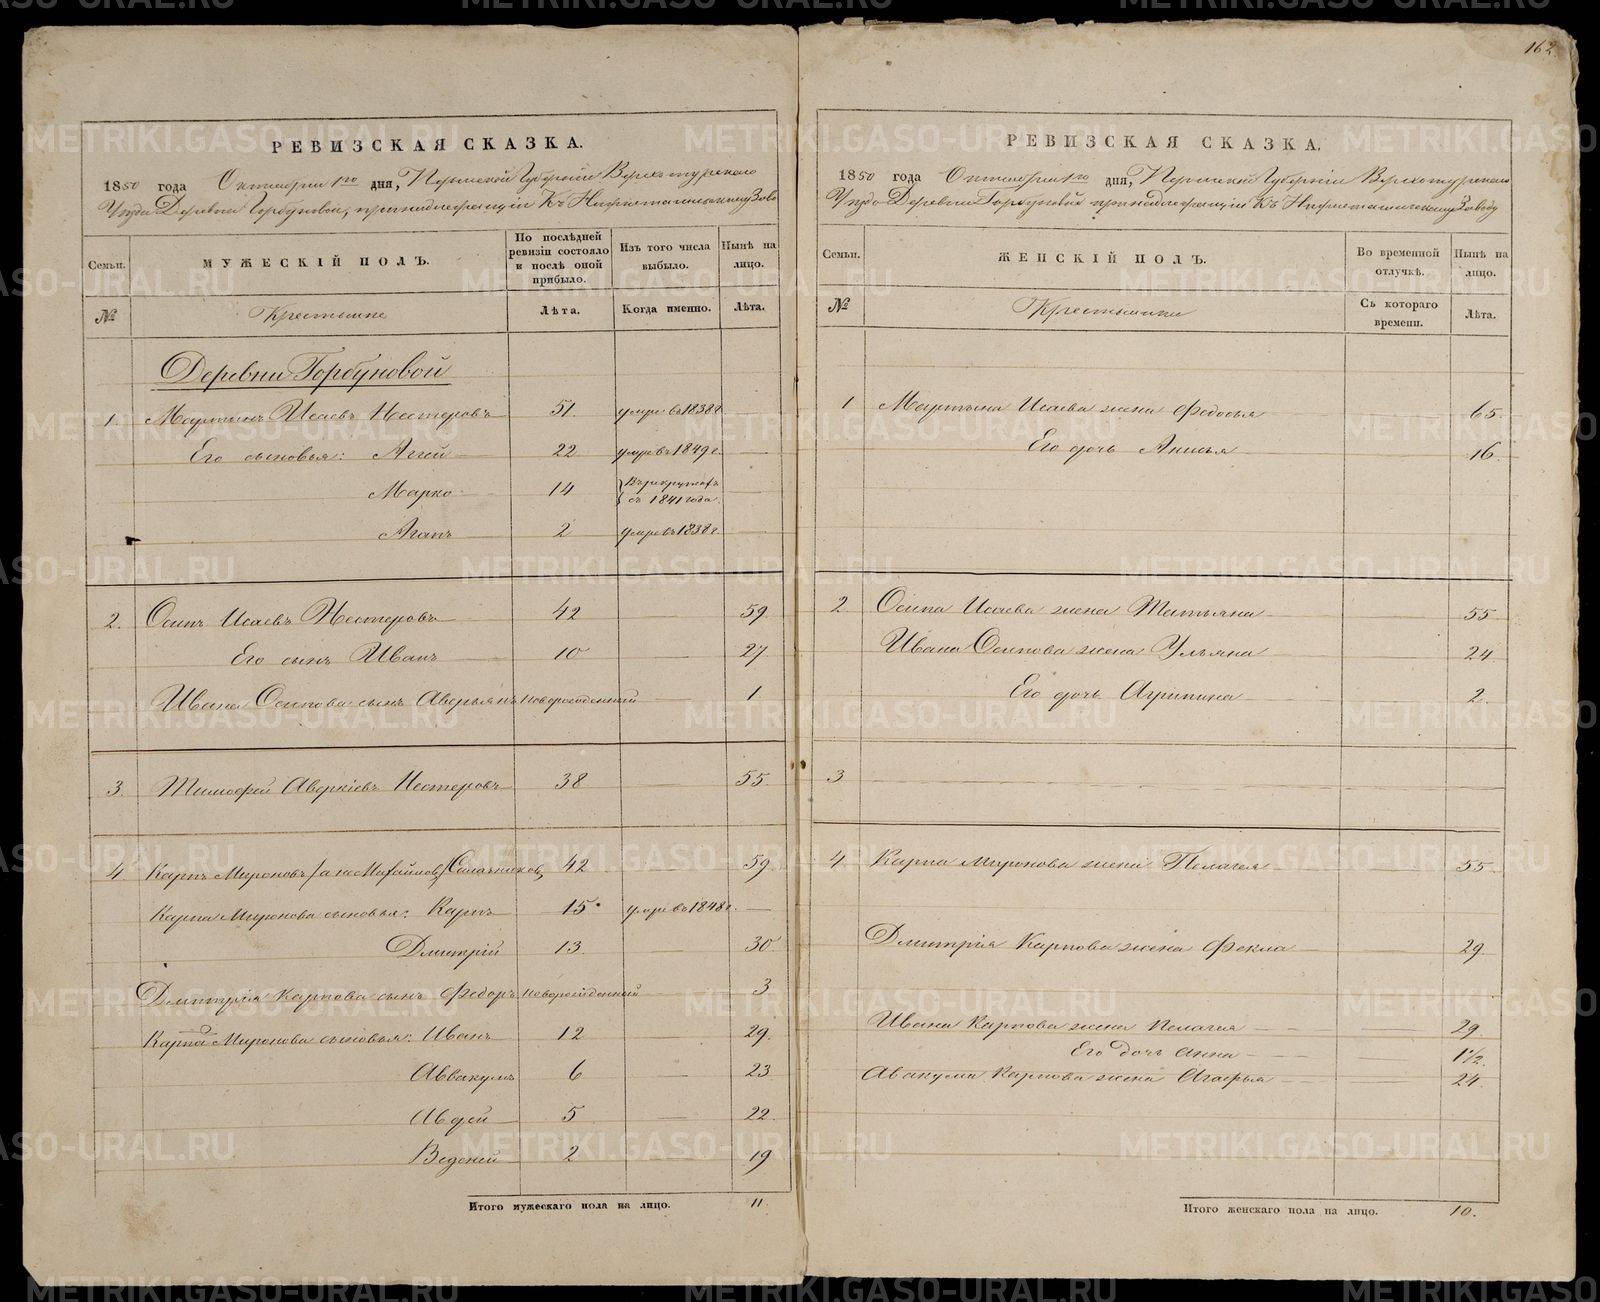 162
РЕВИЗСКАЯ СКАЗКА.
1850 года Октября 1го дня, Пермской Губерніи Верхотурскаго
Уѣзда Деревни Горбуновой, принадлежащей Къ Нижнетагильскому Заво
Семьи. МУЖЕСКІЙ ПОЛЪ. По послѣдней ревизіи состояло и послѣ оной прибыло. Изъ того числа выбыло. Нынѣ на лицо.
№ Крестьяне Лѣта. Когда именно. Лѣта.
Деревни Горбуновой
1. Мартынъ Исаевъ Нестеровъ 51. умре въ 1838 г
Его сыновья: Аггей 22 умре въ 1849 г.
Марко 14 Въ рекрутахъ съ 1841 года.
Агапъ 2 умре въ 1838 г.
2. Осипъ Исаевъ Нестеровъ 42 59.
Его сынъ Иванъ 10 27.
Ивана Осипова сынъ Аверьянъ новорожденный 1.
3. Тимофей Аверкіевъ Нестеровъ 38 55.
4 Карпъ Мироновъ /а не Михайловъ/ 42 59.
Карпа Миронова сыновья: Карпъ 15. умре въ 1848 г.
Дмитрій 13. 30
Дмитрія Карпова сынъ Федоръ новорожденный 3.
Карпа Миронова сыновья: Иванъ 12 29.
Аввакумъ 6 23
Авдей 5 22.
Веденей 2 19
Итого мужескаго пола на лицо. 11.
РЕВИЗСКАЯ СКАЗКА.
1850 года Октября 1го дня, Пермской Губерніи Верхотурскаго
Уѣзда Деревни Горбуновой принадлежащей Къ Нижнетагильскому Заводу
Семьи. ЖЕНСКІЙ ПОЛЪ. Во временной отлучкѣ. Нынѣ на лицо.
№ Крестьянки Съ котораго времени. Лѣта.
1 Мартына Исаева жена Федосья 65
Его дочь Анисья 16
2. Осипа Исаева жена Татьяна 55
Ивана Осипова жена Ульяна 24
Его дочь Агрипина 2.
3
4. Карпа Миронова жена Пелагея 55.
Дмитрія Карпова жена Фекла 29.
Ивана Карпова жена Пелагея 29
Его дочь Анна 1 1/2.
Авакума Карпова жена Агафья 24.
Итого женскаго пола на лицо. 10.
METRIKI.GASO-URAL.RU